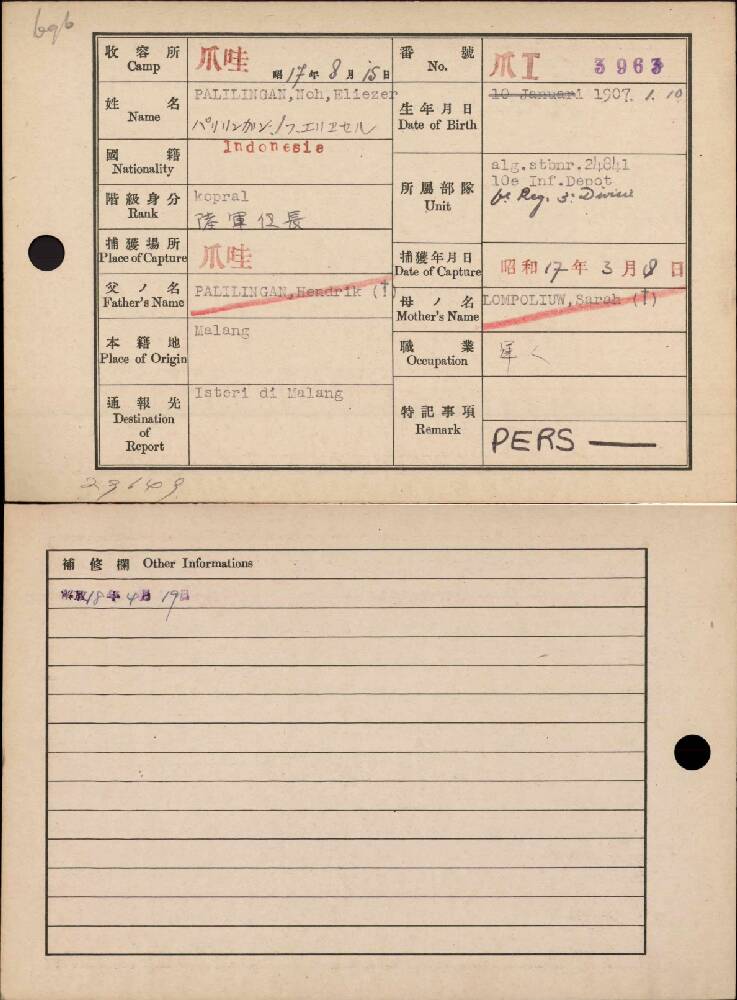 bgb
收容所 爪哇
Camp 昭17年8月15日
番號 爪I 3963
No.
姓名 PALILINGAN,Noh,Eliezer
Name パリリンガン,ノフ エリエセル
生年月日 10 Januari 1907. 1. 10
Date of Birth
國籍 Indonesie
Nationality
所屬部隊 alg.stbnr.24841
Unit 10e Inf.Depot
6e Reg. 3e Divisie
階級身分 kopral
Rank 陸軍伍長
捕獲場所 爪哇
Place of Capture
捕獲年月日 昭和17年3月8日
Date of Capture
父ノ名 PALILINGAN,Hendrik (†)
Father's Name
母ノ名 LOMPOLIUW,Sarah (†)
Mother's Name
本籍地 Malang
Place of Origin
職業 軍人
Occupation
通報先 Isteri di Malang
Destination
of
Report
特記事項
Remark PERS —
23649
補修欄 Other Informations
18年4月19日